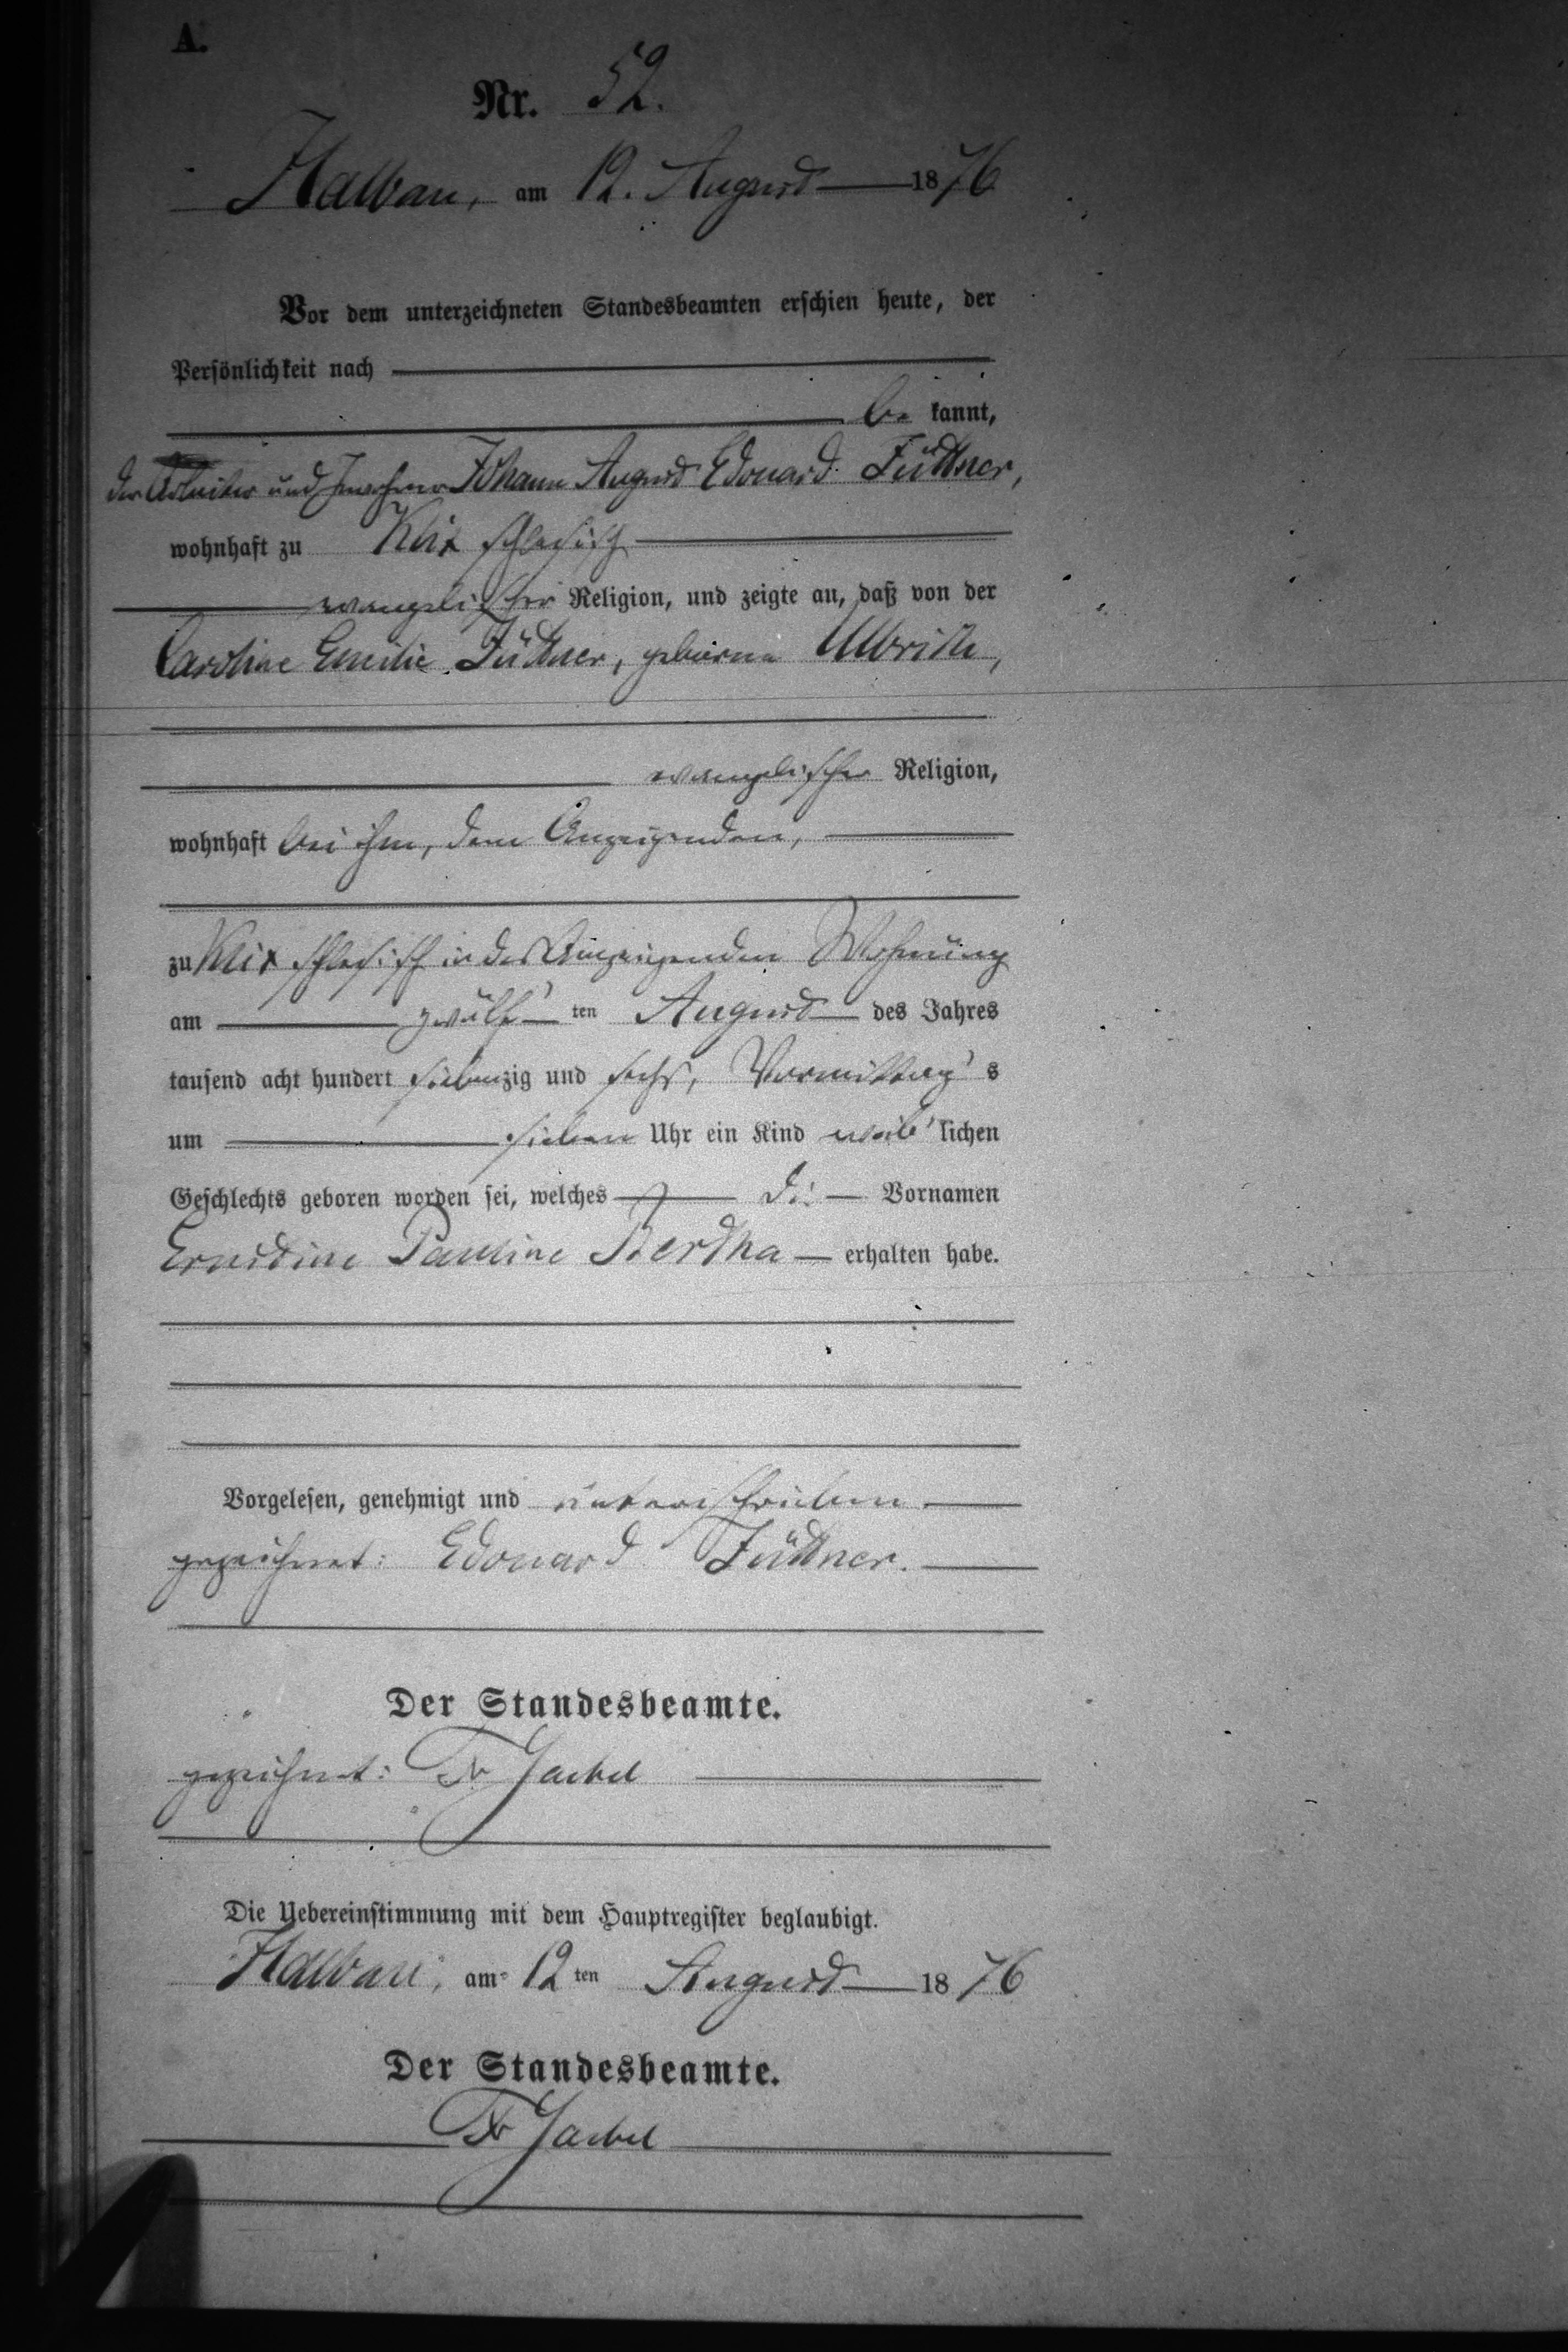 A.
Nr. 52.
Halbau, am 12. August 1876
Vor dem unterzeichneten Standesbeamten erschien heute, der
Persönlichkeit nach
be kannt,
der Arbeiter und Inwohner Johann August Edouard Jüttner,
wohnhaft zu Klix schlesisch
evangelischer Religion, und zeigte an, daß von der
Caroline Emilie Jüttner, geborne Ulbrich,
evangelischer Religion,
wohnhaft bei ihm, dem Anzeigenden,
zu Klix schlesisch in des Anzeigenden Wohnung
am zwölf ten August des Jahres
tausend acht hundert siebenzig und sechs, Vormittag s
um sieben Uhr ein Kind weib lichen
Geschlechts geboren worden sei, welches die Vornamen
Ernestine Pauline Bertha erhalten habe.
Vorgelesen, genehmigt und unterschrieben
gezeichnet: Edouard Jüttner.
Der Standesbeamte.
gezeichnet: Fr Jaekel
Die Uebereinstimmung mit dem Hauptregister beglaubigt.
Halbau, am 12 ten August 1876
Der Standesbeamte.
Fr Jaekel